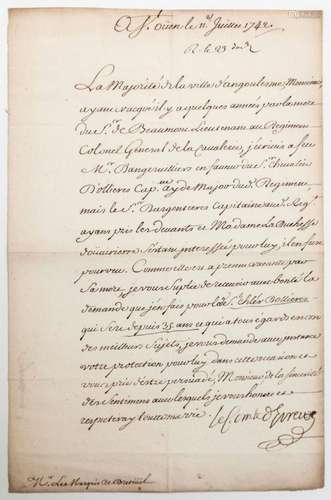 A St. Oüen le 11e Juillet 1742
R. le 23 dud.
La Majorité de la ville d'angoulesme, Monsieur,
ayant vacqué il y a quelques années par la mort
du Sr. de Beaumon Lieutenant au Regiment
Colonel General de la Cavalerie, j'écrivis a feu
Mr. Dangervilliers en faveur du Sr. chevalier
Dollieres Cap.ne ayde Major dud. Regiment
mais le Sr. Capitaine aud. Regt.
ayant pris les devants et Madame la Duchesse
douairiere s'étant interessée pour luy, il en fut
pourveu. Comme elle est a present vacante par
sa mort, je vous suplie de recevoir avec bonté la
demande que j'en fais pour led. Sr. Chler. Dollieres
qui sert depuis 35 ans et qui a tous egards est un
des meilleurs Sujets, je vous demande avec instance
votre protection pour luy dans cette occasion et
vous prie d'etre persuadé, Monsieur de la sincerité
des Sentimens avec lesquels je vous honore et
respecteray toutte ma vie. le Comte d'Evreux
Mr. Le Marquis de Breteuil